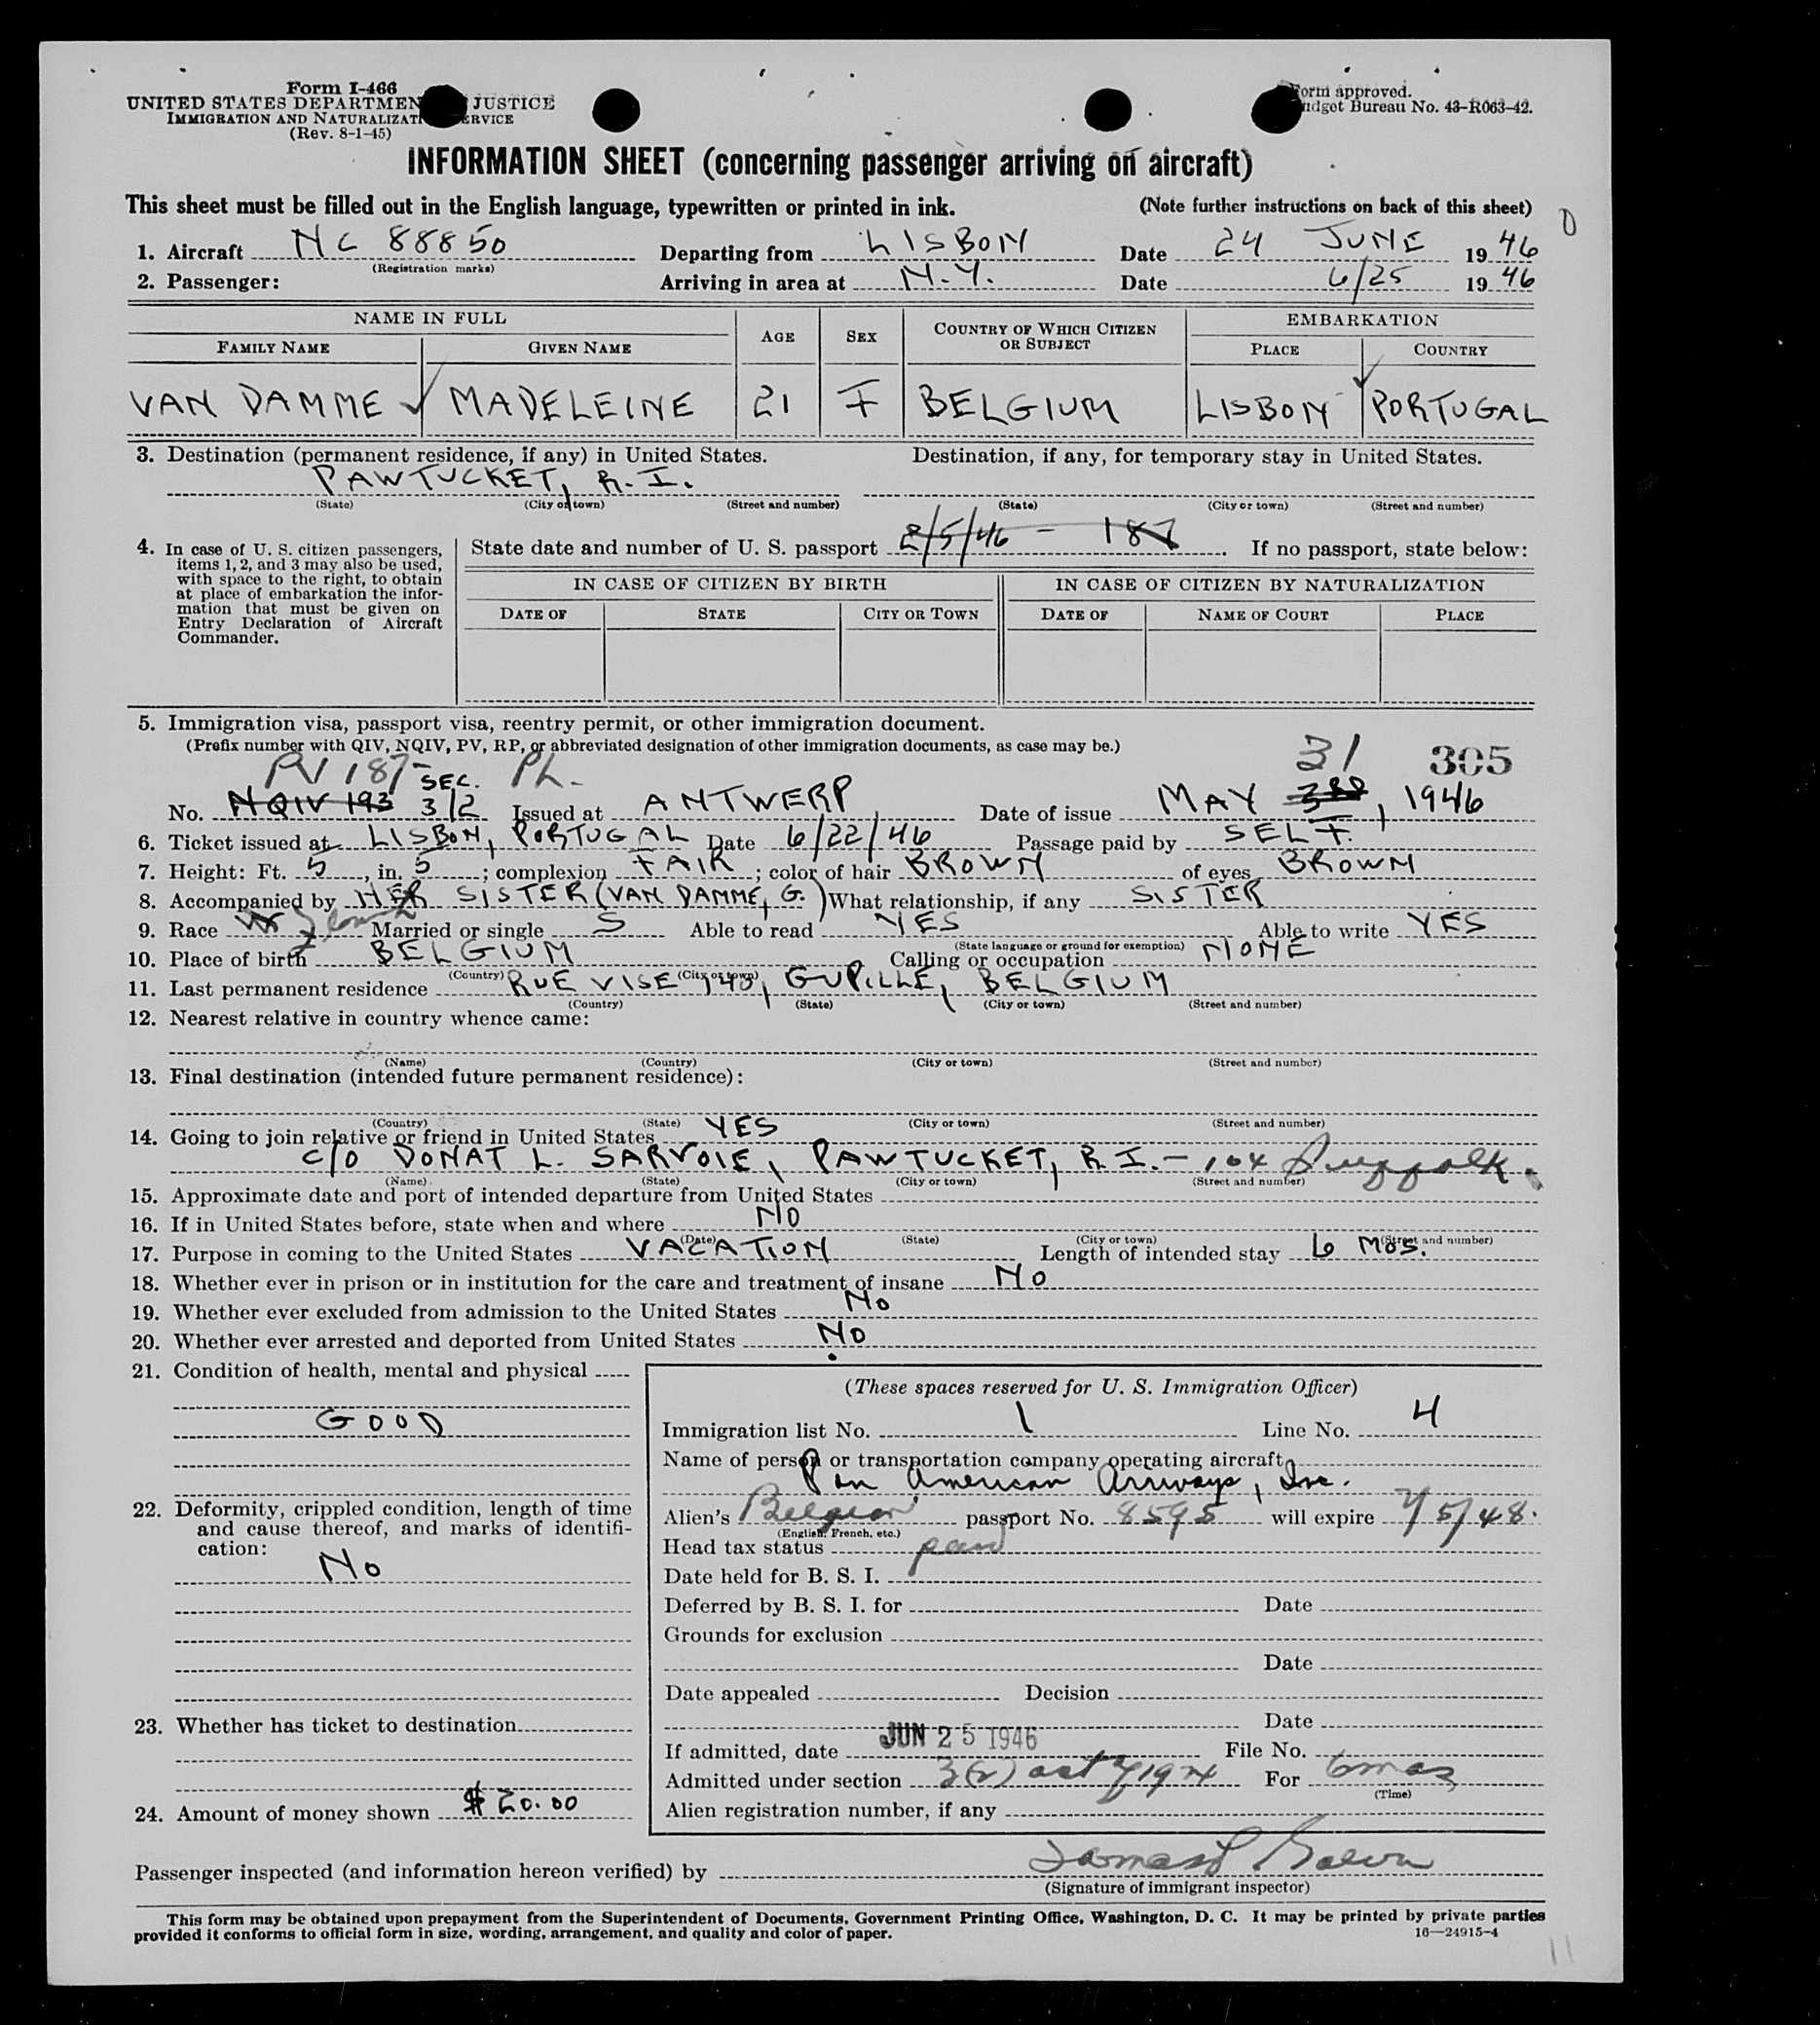 Form I-466
UNITED STATES DEPARTMEN JUSTICE
IMMIGRATION AND NATURALIZATI ERVICE
(Rev. 8-1-45)
orm approved.
udget Bureau No. 43-R063-42.
INFORMATION SHEET (concerning passenger arriving on aircraft)
This sheet must be filled out in the English language, typewritten or printed in ink. (Note further instructions on back of this sheet)
1. Aircraft NC 88850 Departing from LISBON Date 24 JUNE 1946
(Registration marks)
2. Passenger: Arriving in area at N.Y. Date 6/25 1946
NAME IN FULL AGE SEX COUNTRY OF WHICH CITIZEN OR SUBJECT EMBARKATION
FAMILY NAME GIVEN NAME PLACE COUNTRY
VAN DAMME MADELEINE 21 F BELGIUM LISBON PORTUGAL
3. Destination (permanent residence, if any) in United States. Destination, if any, for temporary stay in United States.
PAWTUCKET, R.I.
(State) (City or town) (Street and number) (State) (City or town) (Street and number)
4. In case of U. S. citizen passengers, items 1, 2, and 3 may also be used, with space to the right, to obtain at place of embarkation the information that must be given on Entry Declaration of Aircraft Commander.
State date and number of U. S. passport 2/5/46 - 187. If no passport, state below:
IN CASE OF CITIZEN BY BIRTH IN CASE OF CITIZEN BY NATURALIZATION
DATE OF STATE CITY OR TOWN DATE OF NAME OF COURT PLACE
5. Immigration visa, passport visa, reentry permit, or other immigration document.
(Prefix number with QIV, NQIV, PV, RP, or abbreviated designation of other immigration documents, as case may be.)
PV 187- SEC. 31 305
No. NQIV 193 3/2 Issued at ANTWERP Date of issue MAY 3RD, 1946
6. Ticket issued at LISBON, PORTUGAL Date 6/22/46 Passage paid by SELF.
7. Height: Ft. 5, in. 5; complexion FAIR; color of hair BROWN of eyes BROWN
8. Accompanied by HER SISTER (VAN DAMME, G.) What relationship, if any SISTER
9. Race W Married or single S Able to read YES Able to write YES
(State language or ground for exemption)
10. Place of birth BELGIUM Calling or occupation NONE
(Country) (City or town)
11. Last permanent residence RUE VISE 143, BELGIUM
(Country) (State) (City or town) (Street and number)
12. Nearest relative in country whence came:
(Name) (Country) (City or town) (Street and number)
13. Final destination (intended future permanent residence):
(Country) (State) (City or town) (Street and number)
14. Going to join relative or friend in United States YES
C/O DONAT L. SARVOIE, PAWTUCKET, R.I. - 104 Suffolk.
(Name) (State) (City or town) (Street and number)
15. Approximate date and port of intended departure from United States
16. If in United States before, state when and where NO
(Date) (State) (City or town) (Street and number)
17. Purpose in coming to the United States VACATION Length of intended stay 6 MOS.
18. Whether ever in prison or in institution for the care and treatment of insane NO
19. Whether ever excluded from admission to the United States NO
20. Whether ever arrested and deported from United States NO
21. Condition of health, mental and physical
GOOD
22. Deformity, crippled condition, length of time and cause thereof, and marks of identification:
NO
23. Whether has ticket to destination
24. Amount of money shown $20.00
(These spaces reserved for U. S. Immigration Officer)
Immigration list No. 1 Line No. 4
Name of person or transportation company operating aircraft
Pan American Airways, Inc.
Alien's Belgian passport No. 8595 will expire 2/5/48.
(English, French, etc.)
Head tax status paid
Date held for B. S. I.
Deferred by B. S. I. for Date
Grounds for exclusion
Date
Date appealed Decision
Date
If admitted, date JUN 25 1946 File No.
Admitted under section 3(2) act of 1924 For 6mos
(Time)
Alien registration number, if any
Passenger inspected (and information hereon verified) by
(Signature of immigrant inspector)
This form may be obtained upon prepayment from the Superintendent of Documents, Government Printing Office, Washington, D. C. It may be printed by private parties
provided it conforms to official form in size, wording, arrangement, and quality and color of paper. 16—24915-4
11